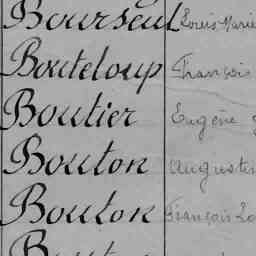 Bourseul Louis Marie
Bouteloup François
Boutier Eugène
Bouton Augustin
Bouton François